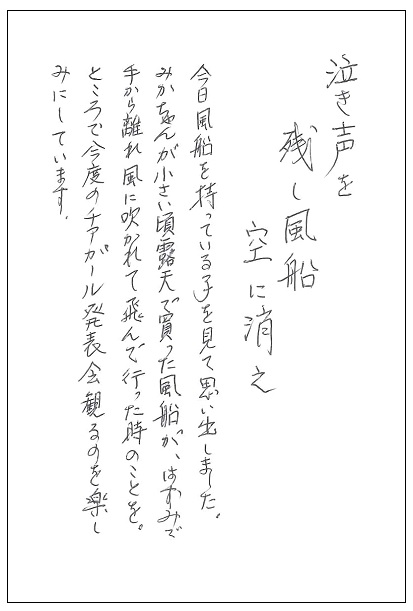 泣き声を
残し風船
空に消え
今日風船を持っている子を見て思い出しました。
みかちゃんが小さい頃露天で買った風船が、はずみで
手から離れ風に吹かれて飛んで行った時のことを。
ところで今度のチアガール発表会観るのを楽し
みにしています。